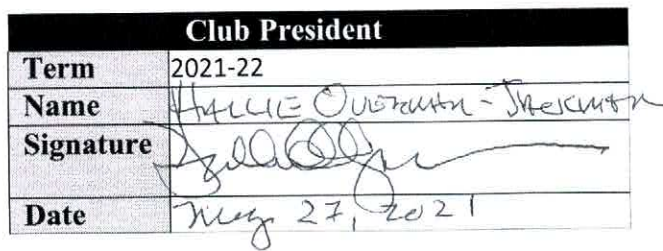 Club President
Term 2021-22
Name HALLIE OVERMAN-JACKMAN
Signature
Date May 27, 2021